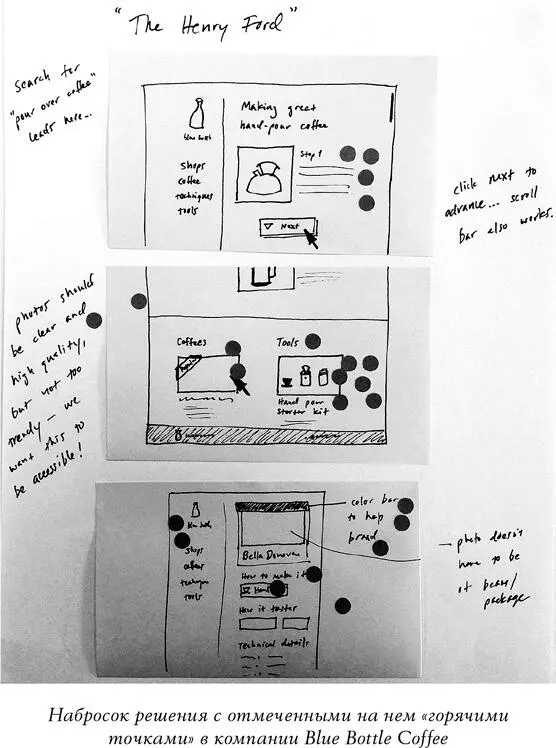 "The Henry Ford"
search for
"pour over coffee"
leads here...
Making great
hand-pour coffee
Step 1
shops
coffee
techniques
tools
Next
click next to
advance... scroll
bar also works.
photos should
be clear and
high quality,
but not too
trendy – we
want this to
be accessible!
Coffees
Tools
Hand pour
starter kit
color bar
to help
brand
Bella Donovan
shops
coffees
techniques
tools
How to make it
How it tastes
Technical details
photo doesn't
have to be
of beans/
package
Набросок решения с отмеченными на нем «горячими
точками» в компании Blue Bottle Coffee